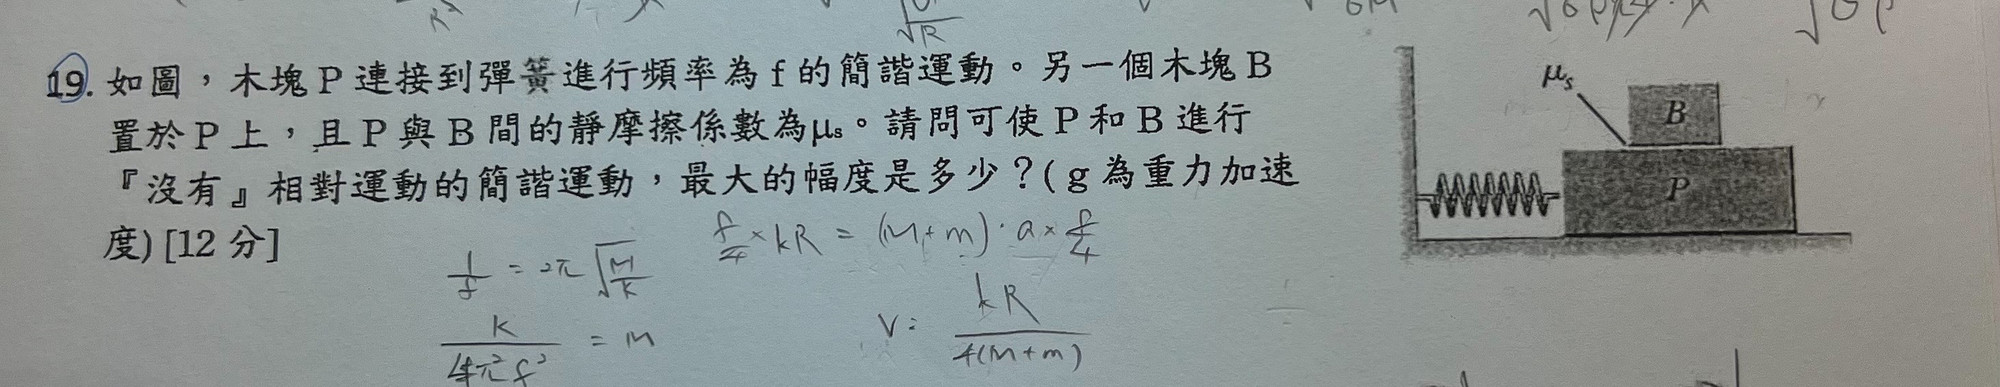 19. 如圖，木塊 P 連接到彈簧進行頻率為 f 的簡諧運動。另一個木塊 B
置於 P 上，且 P 與 B 間的靜摩擦係數為μs。請問可使 P 和 B 進行
『沒有』相對運動的簡諧運動，最大的幅度是多少？( g 為重力加速
度) [12 分]
μs
B
P
1/f = 2π√(M/K)
K/(4π²f²) = M
f/4 × kR = (M+m)·a× f/4
V = kR/(4(M+m))